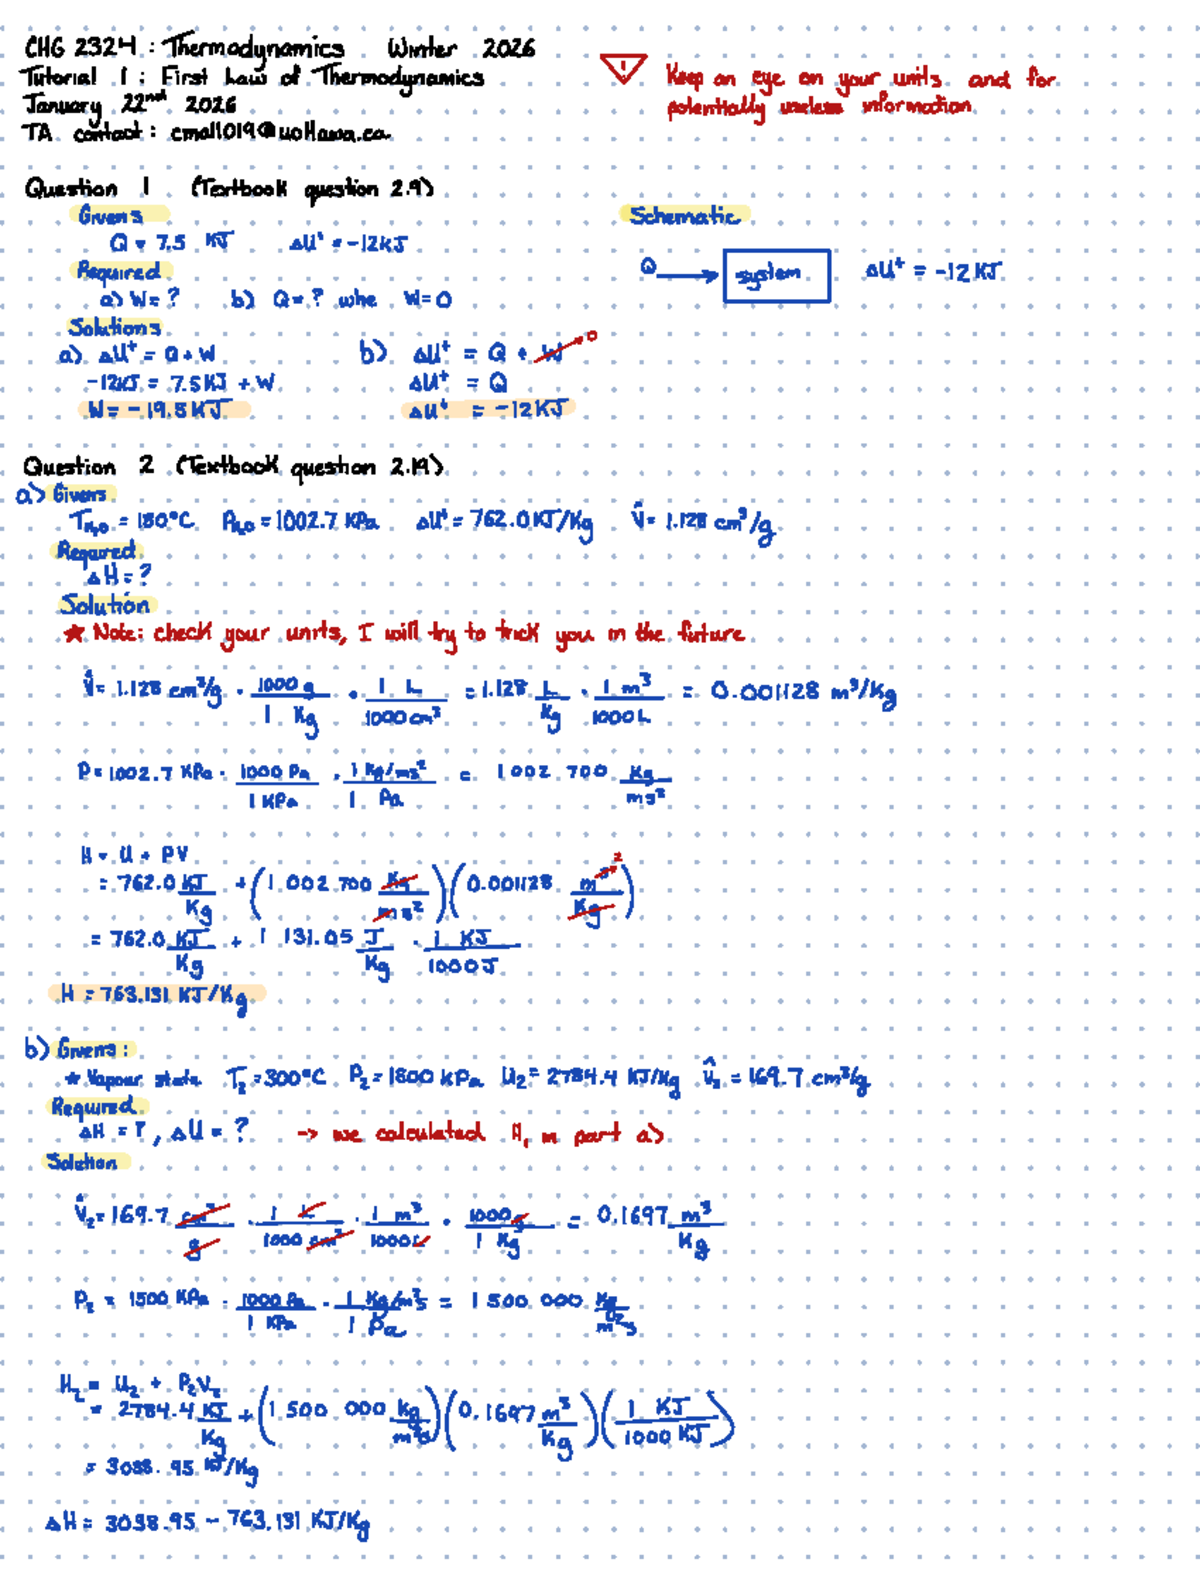 CHG 2324 : Thermodynamics Winter 2026
Tutorial 1 : First Law of Thermodynamics
January 22nd 2026
TA contact : cmall019@uottawa.ca
! Keep an eye on your units and for
potentially useless information
Question 1 (Textbook question 2.9)
Givens
Q = 7.5 KJ ΔUᵗ = -12KJ
Required
a) W = ? b) Q = ? whe W=0
Solutions
a) ΔUᵗ = Q + W
-12KJ = 7.5KJ + W
W = -19.5KJ
b) ΔUᵗ = Q + W → 0
ΔUᵗ = Q
ΔUᵗ = -12KJ
Schematic
Q → system ΔUᵗ = -12KJ
Question 2 (Textbook question 2.19)
a) Givens
T_H₂O = 180°C P_H₂O = 1002.7 KPa ΔUᵗ = 762.0KJ/Kg V̂ = 1.128 cm³/g
Required
ΔH = ?
Solution
★ Note: check your units, I will try to trick you in the future
V̂ = 1.128 cm³/g · 1000 g / 1 Kg · 1 L / 1000 cm³ = 1.128 L/Kg · 1 m³ / 1000L = 0.001128 m³/Kg
P = 1002.7 KPa · 1000 Pa / 1 KPa · 1 Kg/ms² / 1 Pa = 1 002 700 Kg/ms²
H = U + PV
= 762.0 KJ/Kg + (1 002 700 Kg/ms²)(0.001128 m³/Kg) 2
= 762.0 KJ/Kg + 1 131.05 J/Kg · 1 KJ / 1000J
H = 763.131 KJ/Kg
b) Givens :
★ Vapour state T₂ = 300°C P₂ = 1800 kPa U₂ = 2784.4 KJ/Kg V̂₂ = 169.7 cm³/g
Required
ΔH = ?, ΔU = ? → we calculated H₁ in part a)
Solution
V̂₂ = 169.7 cm³/g · 1 L / 1000 cm³ · 1 m³ / 1000L · 1000g / 1 Kg = 0.1697 m³/Kg
P₂ = 1500 KPa · 1000 Pa / 1 KPa · 1 Kg/m²s / 1 Pa = 1 500 000 Kg/m²s
H₂ = U₂ + P₂V₂
= 2784.4 KJ/Kg + (1 500 000 kg/m²s)(0.1697 m³/Kg)(1 KJ / 1000 KJ)
= 3038.95 KJ/Kg
ΔH = 3038.95 - 763.131 KJ/Kg